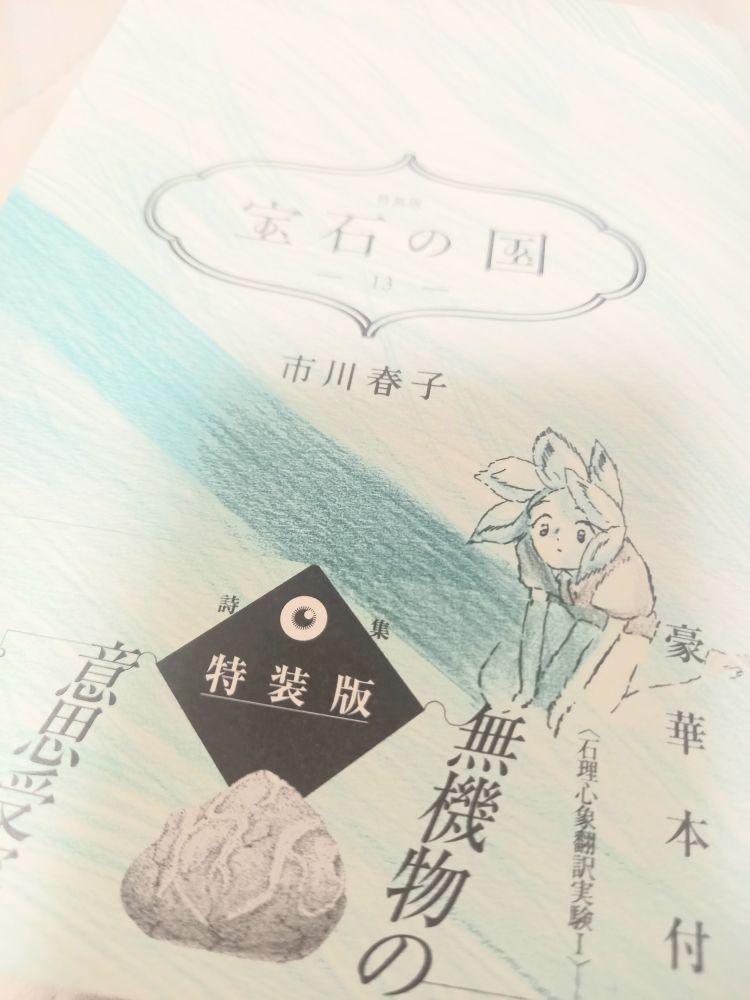 特装版
宝石の国
13
市川春子
詩集
特装版
豪華本付
無機物の
〈石理心象翻訳実験Ⅰ〉
意思受